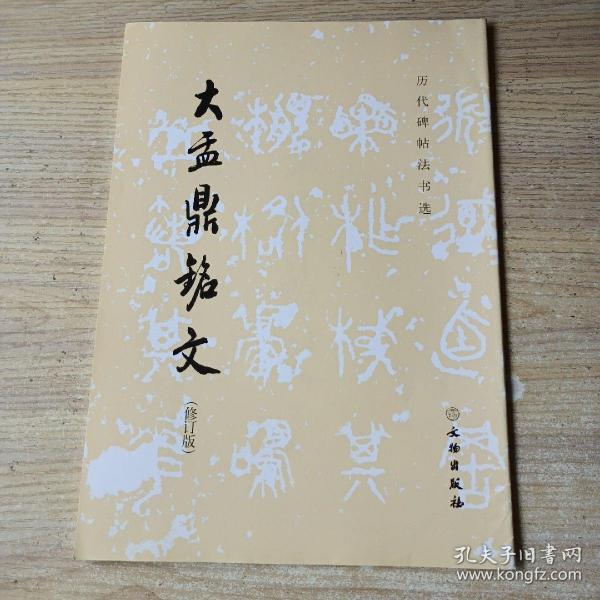 历代碑帖法书选
大盂鼎铭文
(修订版)
文物出版社
孔夫子旧书网
www.kongfz.com